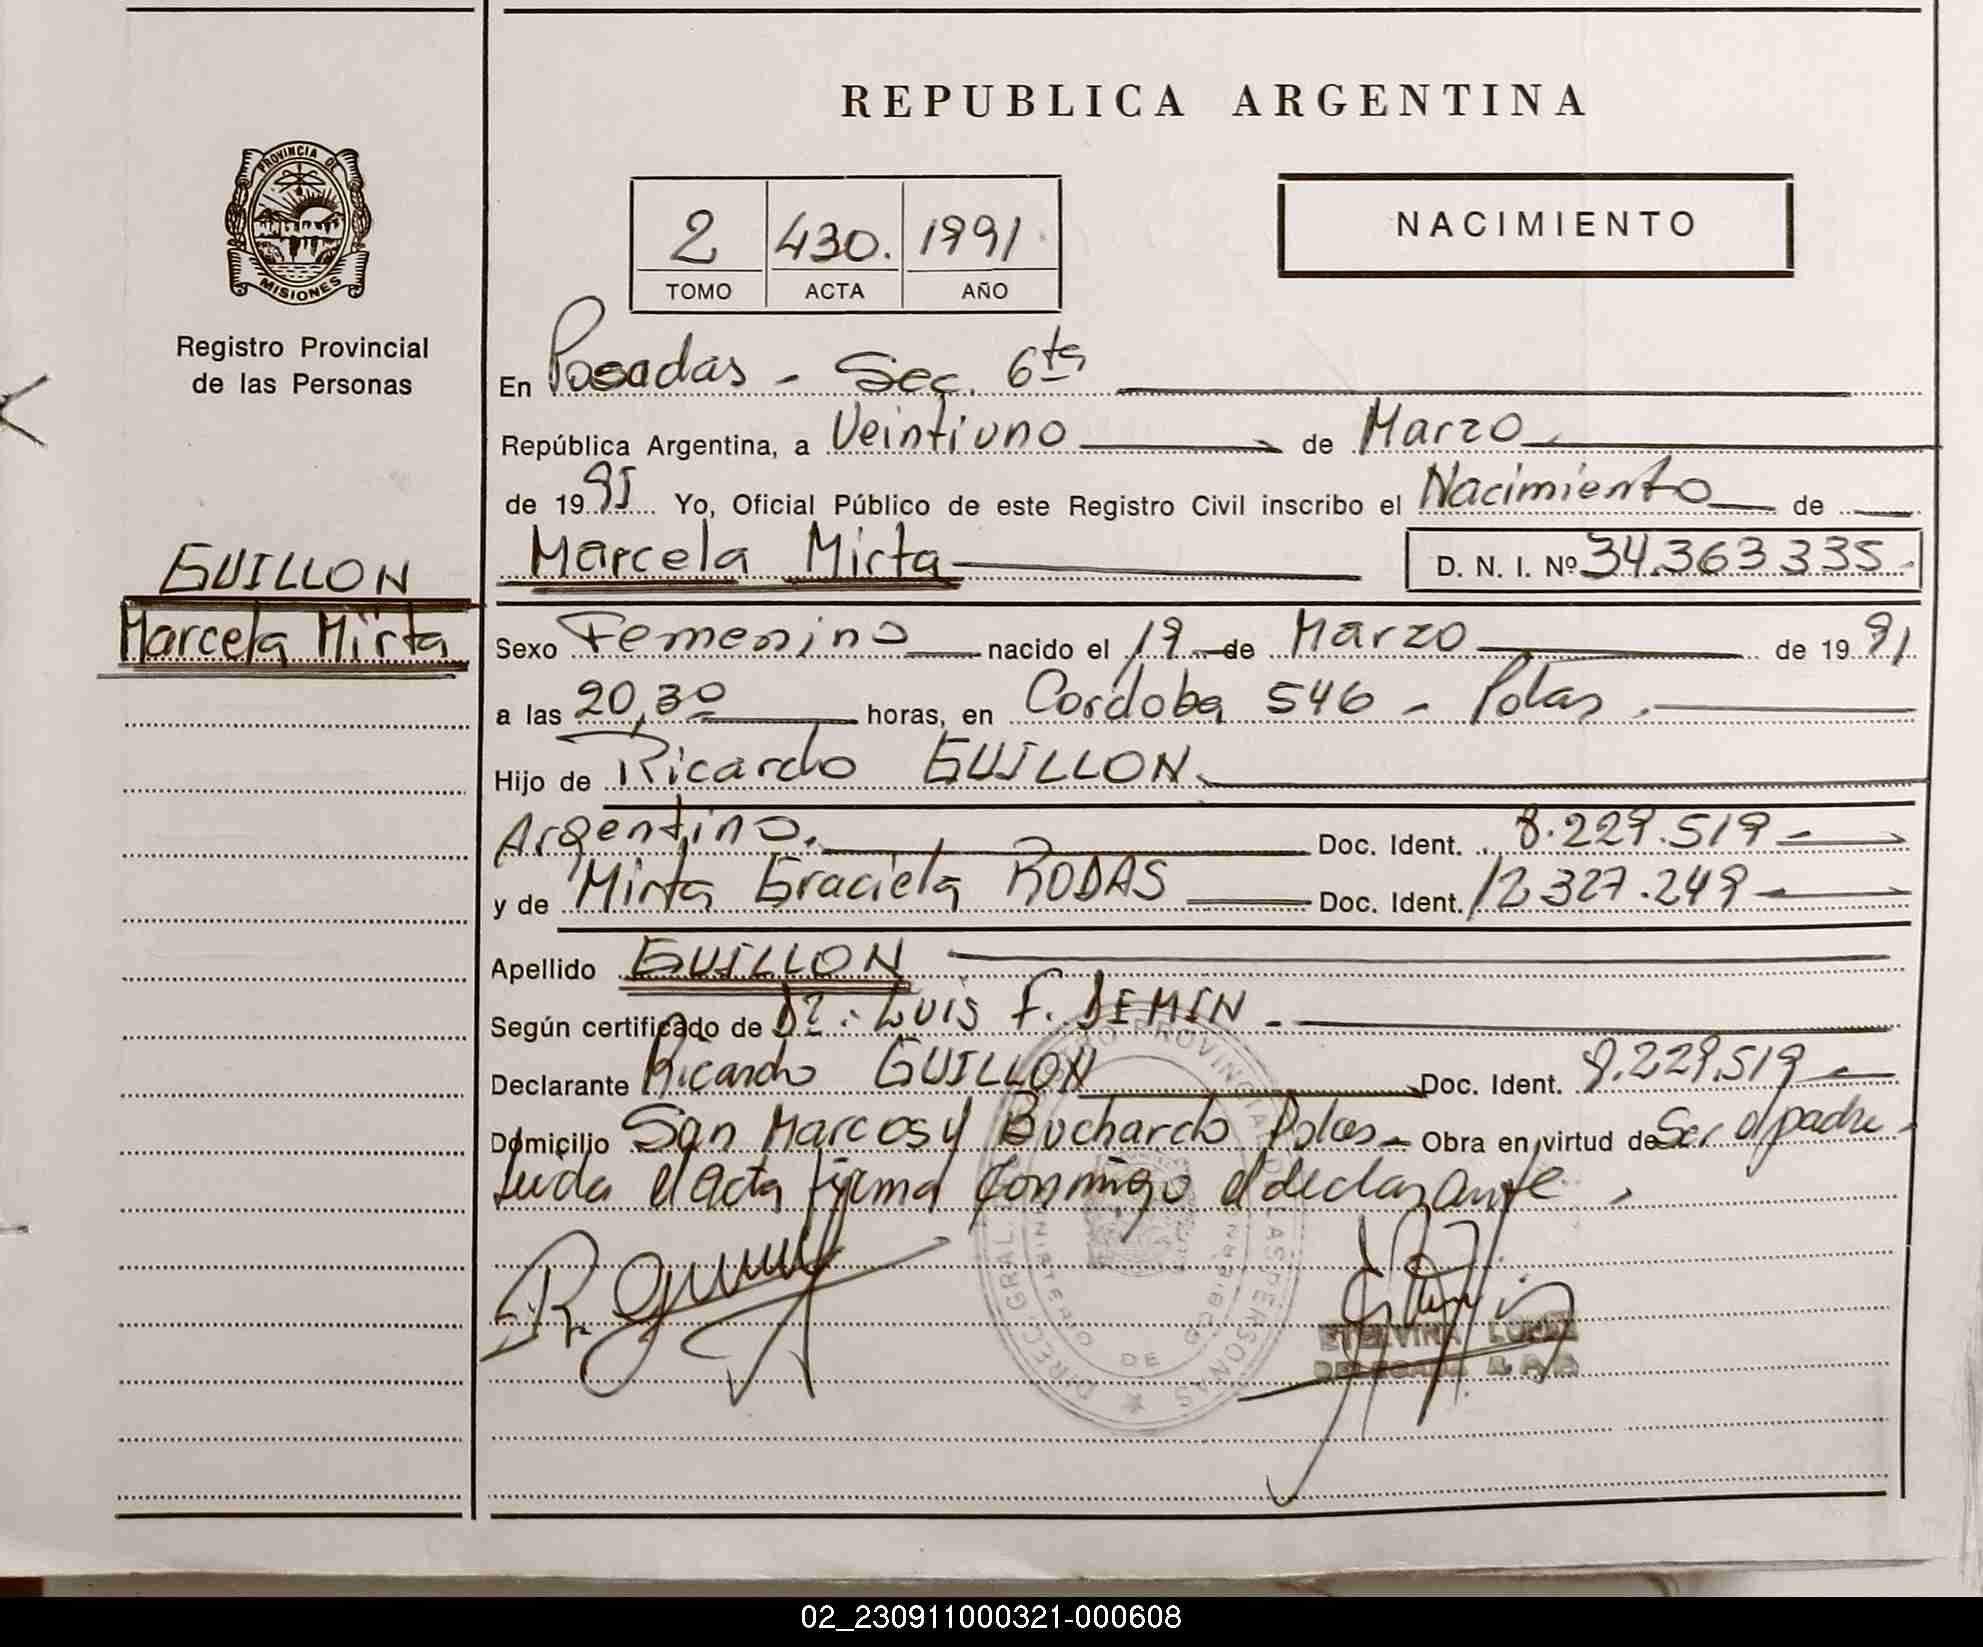 REPUBLICA ARGENTINA
PROVINCIA DE
MISIONES
Registro Provincial
de las Personas
2 430. 1991
TOMO ACTA AÑO
NACIMIENTO
En Posadas - Sec. 6ta
República Argentina, a Veintiuno de Marzo
de 1991 Yo, Oficial Público de este Registro Civil inscribo el Nacimiento de
GUILLON
Marcela Mirta
Marcela Mirta D. N. I. Nº 34.363.335
Sexo Femenino nacido el 19 de Marzo de 1991
a las 20,30 horas, en Cordoba 546 - Pdas.
Hijo de Ricardo GUILLON
Argentino. Doc. Ident. 8.229.519
y de Mirta Graciela RODAS Doc. Ident. 12.327.249
Apellido GUILLON
Según certificado de Dr. Luis F. DEMIN
Declarante Ricardo GUILLON Doc. Ident. 8.229.519
Domicilio San Marcos y Buchardo Pdas. Obra en virtud de Ser el padre
Leida el acta firma conmigo el declarante.
DIREC. GRAL. PROVINCIAL DE LAS PERSONAS
ETELVINA LOPEZ
02_230911000321-000608